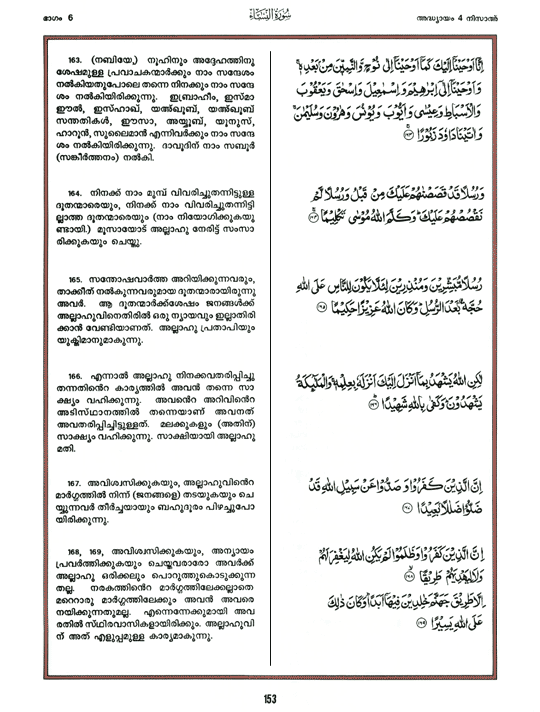 ഭാഗം 6
سُورَةُ النِّسَاءِ
അദ്ധ്യായം 4 നിസാഅ്
163. (നബിയേ,) നൂഹിനും അദ്ദേഹത്തിനു
ശേഷമുള്ള പ്രവാചകന്മാർക്കും നാം സന്ദേശം
നൽകിയതുപോലെ തന്നെ നിനക്കും നാം സന്ദേ
ശം നൽകിയിരിക്കുന്നു. ഇബ്രാഹീം, ഇസ്മാ
ഈൽ, ഇസ്ഹാഖ്, യഅ്ഖൂബ്, യഅ്ഖൂബ്
സന്തതികൾ, ഈസാ, അയ്യൂബ്, യൂനുസ്,
ഹാറൂൻ, സുലൈമാൻ എന്നിവർക്കും നാം സന്ദേ
ശം നൽകിയിരിക്കുന്നു. ദാവൂദിന് നാം സബൂർ
(സങ്കീർത്തനം) നൽകി.
إِنَّا أَوْحَيْنَا إِلَيْكَ كَمَا أَوْحَيْنَا إِلَىٰ نُوحٍ وَالنَّبِيِّينَ مِنْ بَعْدِهِ ۚ
وَأَوْحَيْنَا إِلَىٰ إِبْرَاهِيمَ وَإِسْمَاعِيلَ وَإِسْحَاقَ وَيَعْقُوبَ
وَالْأَسْبَاطِ وَعِيسَىٰ وَأَيُّوبَ وَيُونُسَ وَهَارُونَ وَسُلَيْمَانَ ۚ
وَآتَيْنَا دَاوُودَ زَبُورًا ﴿١٦٣﴾
164. നിനക്ക് നാം മുമ്പ് വിവരിച്ചുതന്നിട്ടുള്ള
ദൂതന്മാരെയും, നിനക്ക് നാം വിവരിച്ചുതന്നിട്ടി
ല്ലാത്ത ദൂതന്മാരെയും (നാം നിയോഗിക്കുകയു
ണ്ടായി.) മൂസായോട് അല്ലാഹു നേരിട്ട് സംസാ
രിക്കുകയും ചെയ്തു.
وَرُسُلًا قَدْ قَصَصْنَاهُمْ عَلَيْكَ مِنْ قَبْلُ وَرُسُلًا لَمْ
نَقْصُصْهُمْ عَلَيْكَ ۚ وَكَلَّمَ اللَّهُ مُوسَىٰ تَكْلِيمًا ﴿١٦٤﴾
165. സന്തോഷവാർത്ത അറിയിക്കുന്നവരും,
താക്കീത് നൽകുന്നവരുമായ ദൂതന്മാരായിരുന്നു
അവർ. ആ ദൂതന്മാർക്ക്ശേഷം ജനങ്ങൾക്ക്
അല്ലാഹുവിനെതിരിൽ ഒരു ന്യായവും ഇല്ലാതിരി
ക്കാൻ വേണ്ടിയാണത്. അല്ലാഹു പ്രതാപിയും
യുക്തിമാനുമാകുന്നു.
رُسُلًا مُبَشِّرِينَ وَمُنْذِرِينَ لِئَلَّا يَكُونَ لِلنَّاسِ عَلَى اللَّهِ
حُجَّةٌ بَعْدَ الرُّسُلِ ۚ وَكَانَ اللَّهُ عَزِيزًا حَكِيمًا ﴿١٦٥﴾
166. എന്നാൽ അല്ലാഹു നിനക്കവതരിപ്പിച്ചു
തന്നതിൻെറ കാര്യത്തിൽ അവൻ തന്നെ സാ
ക്ഷ്യം വഹിക്കുന്നു. അവൻെറ അറിവിൻെറ
അടിസ്ഥാനത്തിൽ തന്നെയാണ് അവനത്
അവതരിപ്പിച്ചിട്ടുള്ളത്. മലക്കുകളും (അതിന്)
സാക്ഷ്യം വഹിക്കുന്നു. സാക്ഷിയായി അല്ലാഹു
മതി.
لَٰكِنِ اللَّهُ يَشْهَدُ بِمَا أَنْزَلَ إِلَيْكَ ۖ أَنْزَلَهُ بِعِلْمِهِ ۖ وَالْمَلَائِكَةُ
يَشْهَدُونَ ۚ وَكَفَىٰ بِاللَّهِ شَهِيدًا ﴿١٦٦﴾
167. അവിശ്വസിക്കുകയും, അല്ലാഹുവിൻെറ
മാർഗത്തിൽ നിന്ന് (ജനങ്ങളെ) തടയുകയും ചെ
യ്യുന്നവർ തീർച്ചയായും ബഹുദൂരം പിഴച്ചുപോ
യിരിക്കുന്നു.
إِنَّ الَّذِينَ كَفَرُوا وَصَدُّوا عَنْ سَبِيلِ اللَّهِ قَدْ
ضَلُّوا ضَلَالًا بَعِيدًا ﴿١٦٧﴾
168, 169, അവിശ്വസിക്കുകയും, അന്യായം
പ്രവർത്തിക്കുകയും ചെയ്തവരാരോ അവർക്ക്
അല്ലാഹു ഒരിക്കലും പൊറുത്തുകൊടുക്കുന്ന
തല്ല. നരകത്തിൻെറ മാർഗത്തിലേക്കല്ലാതെ
മറെറാരു മാർഗത്തിലേക്കും അവൻ അവരെ
നയിക്കുന്നതുമല്ല. എന്നെന്നേക്കുമായി അവ
രതിൽ സ്ഥിരവാസികളായിരിക്കും. അല്ലാഹുവി
ന് അത് എളുപ്പമുള്ള കാര്യമാകുന്നു.
إِنَّ الَّذِينَ كَفَرُوا وَظَلَمُوا لَمْ يَكُنِ اللَّهُ لِيَغْفِرَ لَهُمْ
وَلَا لِيَهْدِيَهُمْ طَرِيقًا ﴿١٦٨﴾
إِلَّا طَرِيقَ جَهَنَّمَ خَالِدِينَ فِيهَا أَبَدًا ۚ وَكَانَ ذَٰلِكَ
عَلَى اللَّهِ يَسِيرًا ﴿١٦٩﴾
153